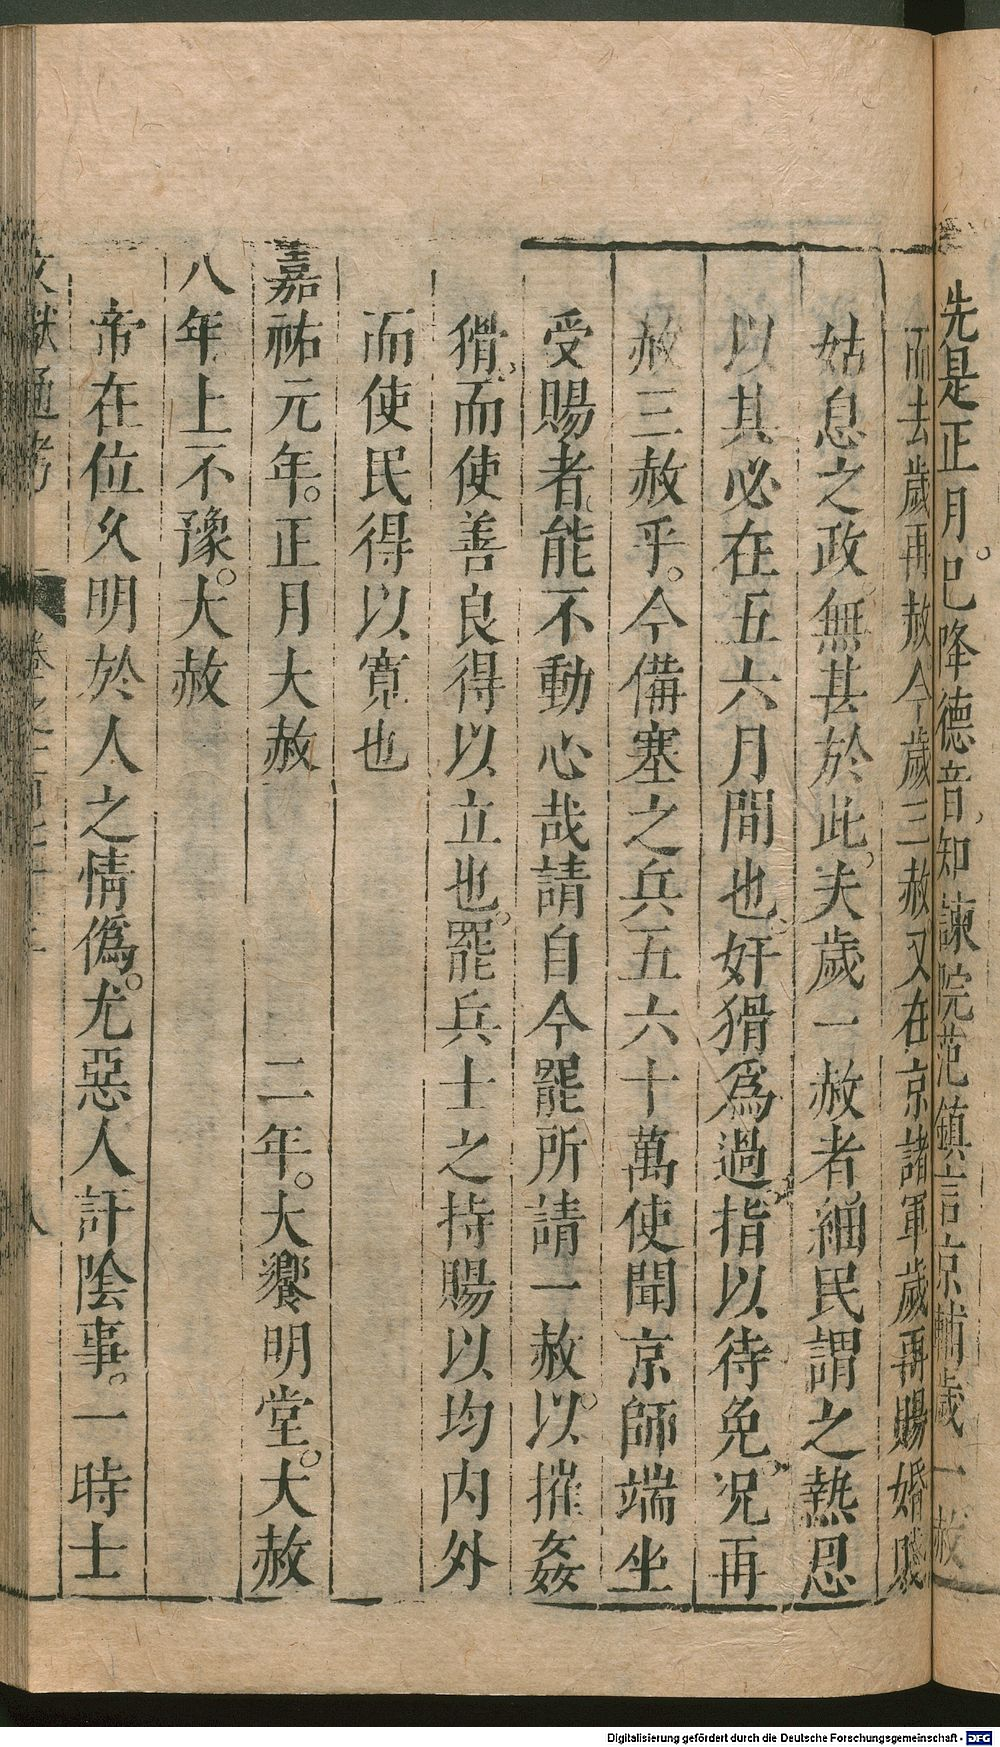 先是正月。已降德音知諫院范鎮言京輔歲一赦
而去歲再赦今歲三赦又在京諸軍歲再賜婚賜
姑息之政無甚於此夫歲一赦者細民謂之熱恩
以其必在五六月間也奸猾爲過指以待免况再
赦三赦乎。今備塞之兵五六十萬使聞京師端坐
受賜者能不動心哉請自今罷所請一赦。以摧姦
猾。而使善良得以立也。罷兵士之特賜以均内外
而使民得以寬也
嘉祐元年。正月大赦 二年。大饗明堂。大赦
八年上不豫。大赦
帝在位久明於人之情僞。尤惡人訐陰事。一時士
文獻通考 卷之一百七十三 八
Digitalisierung gefördert durch die Deutsche Forschungsgemeinschaft - DFG